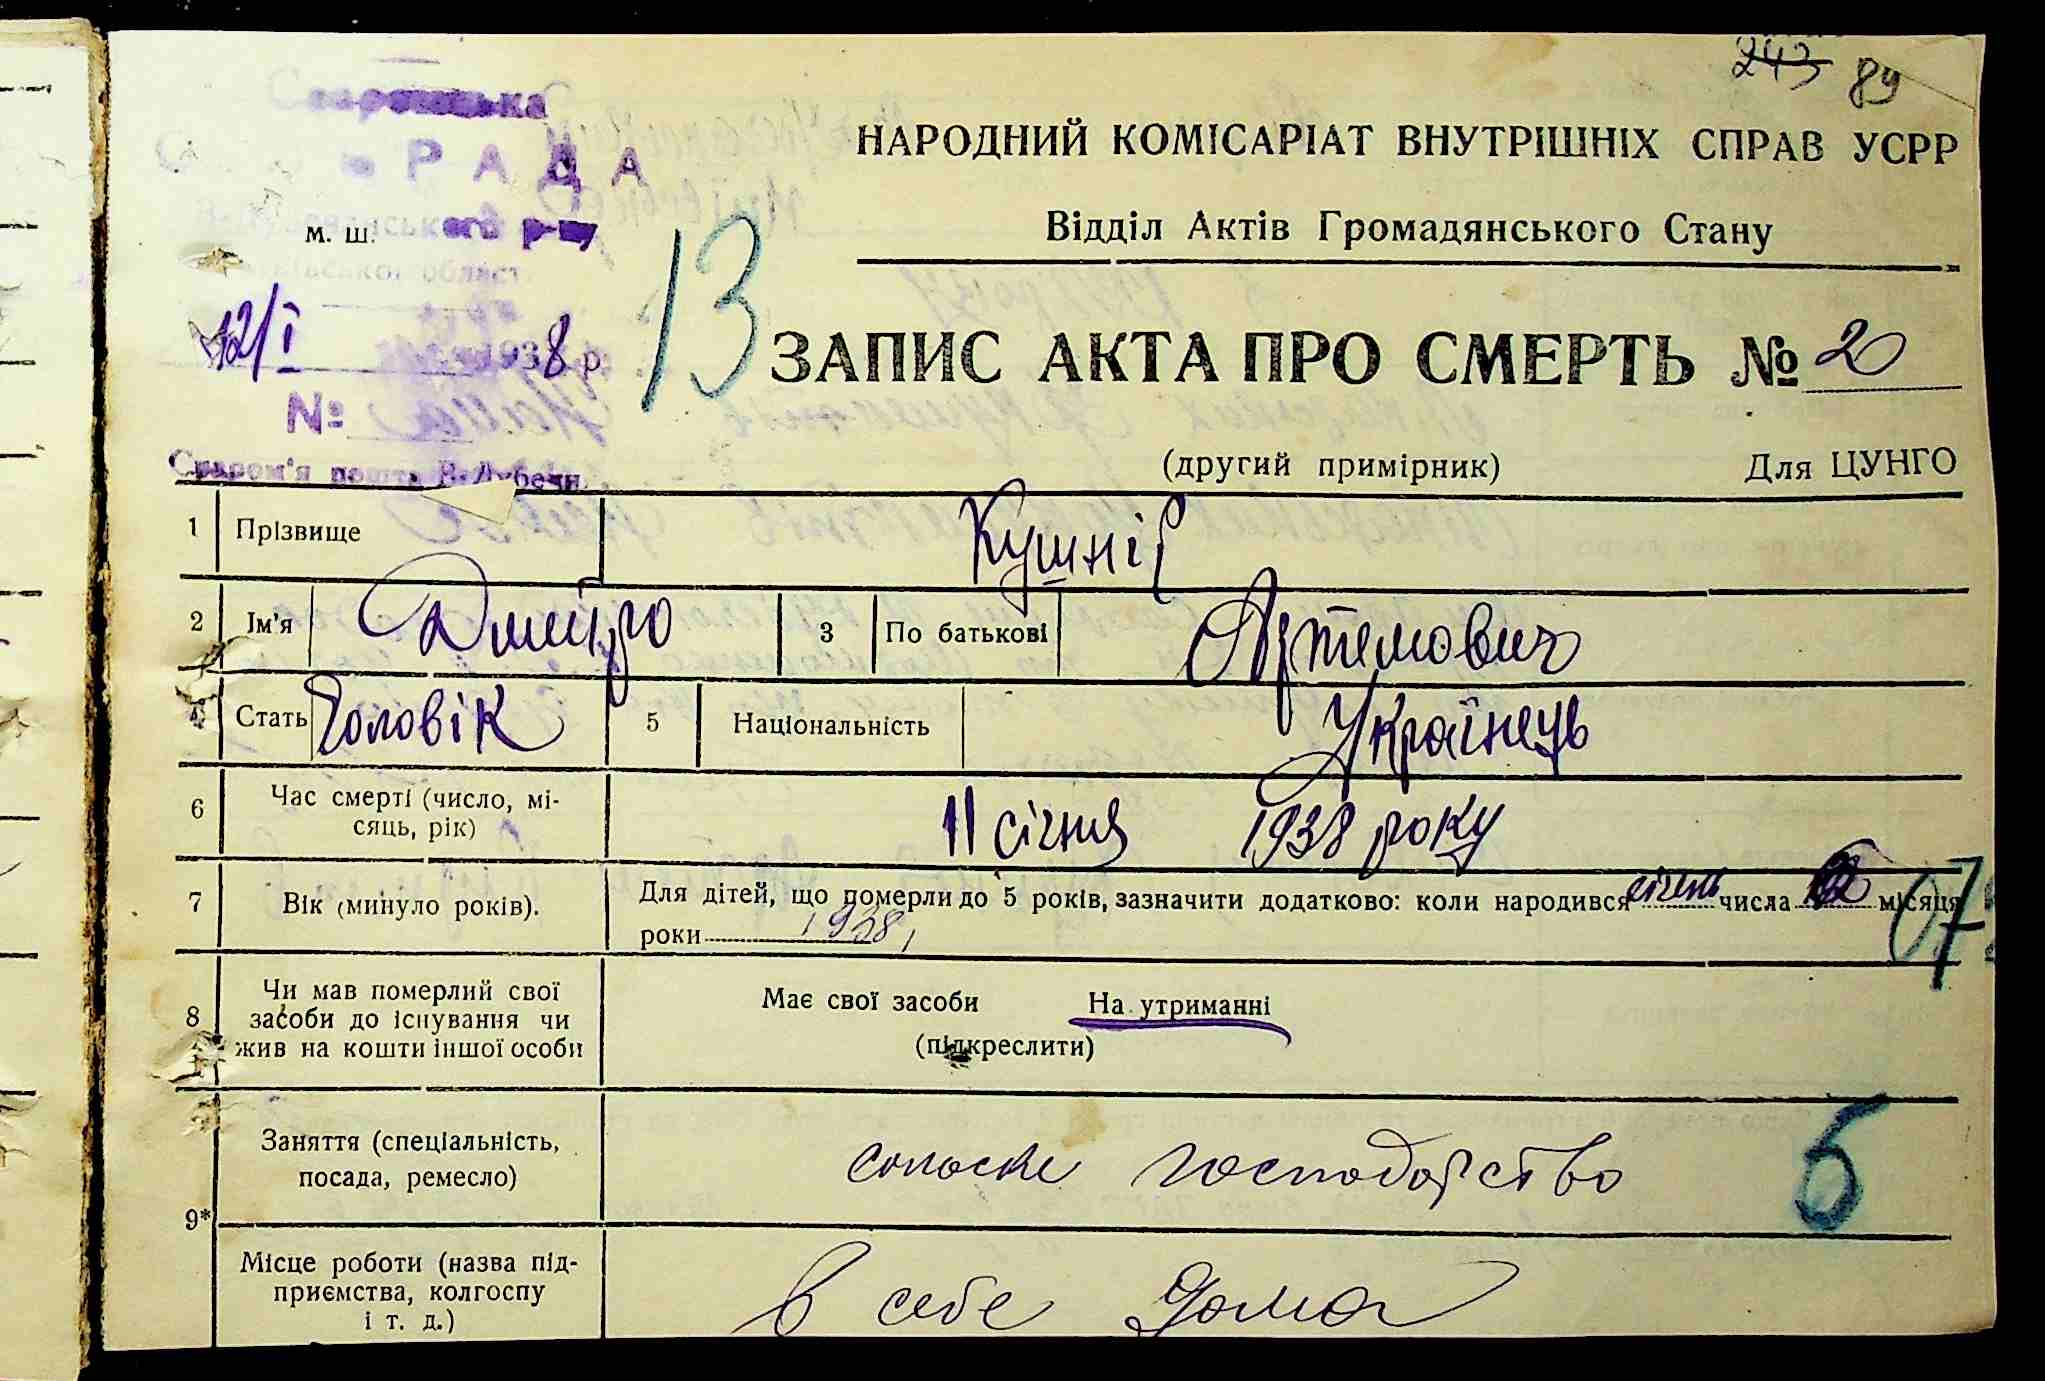 243 89
НАРОДНИЙ КОМІСАРІАТ ВНУТРІШНІХ СПРАВ УСРР
Відділ Актів Громадянського Стану
РАДА
м. ш.
12/I 1938 р.
13
ЗАПИС АКТА ПРО СМЕРТЬ № 20
№
(другий примірник) Для ЦУНГО
1 Прізвище Кушнір
2 Ім'я Дмитро 3 По батькові Артемович
4 Стать Чоловік 5 Національність Українець
6 Час смерті (число, мі-
сяць, рік) 11 січня 1938 року
7 Вік (минуло років). Для дітей, що померли до 5 років, зазначити додатково: коли народився січень числа місяця
роки 1938
07
8 Чи мав померлий свої
засоби до існування чи
жив на кошти іншої особи
Має свої засоби На утриманні
(підкреслити)
9*
Заняття (спеціальність,
посада, ремесло) господарство
6
Місце роботи (назва під-
приємства, колгоспу
і т. д.) в себе дома